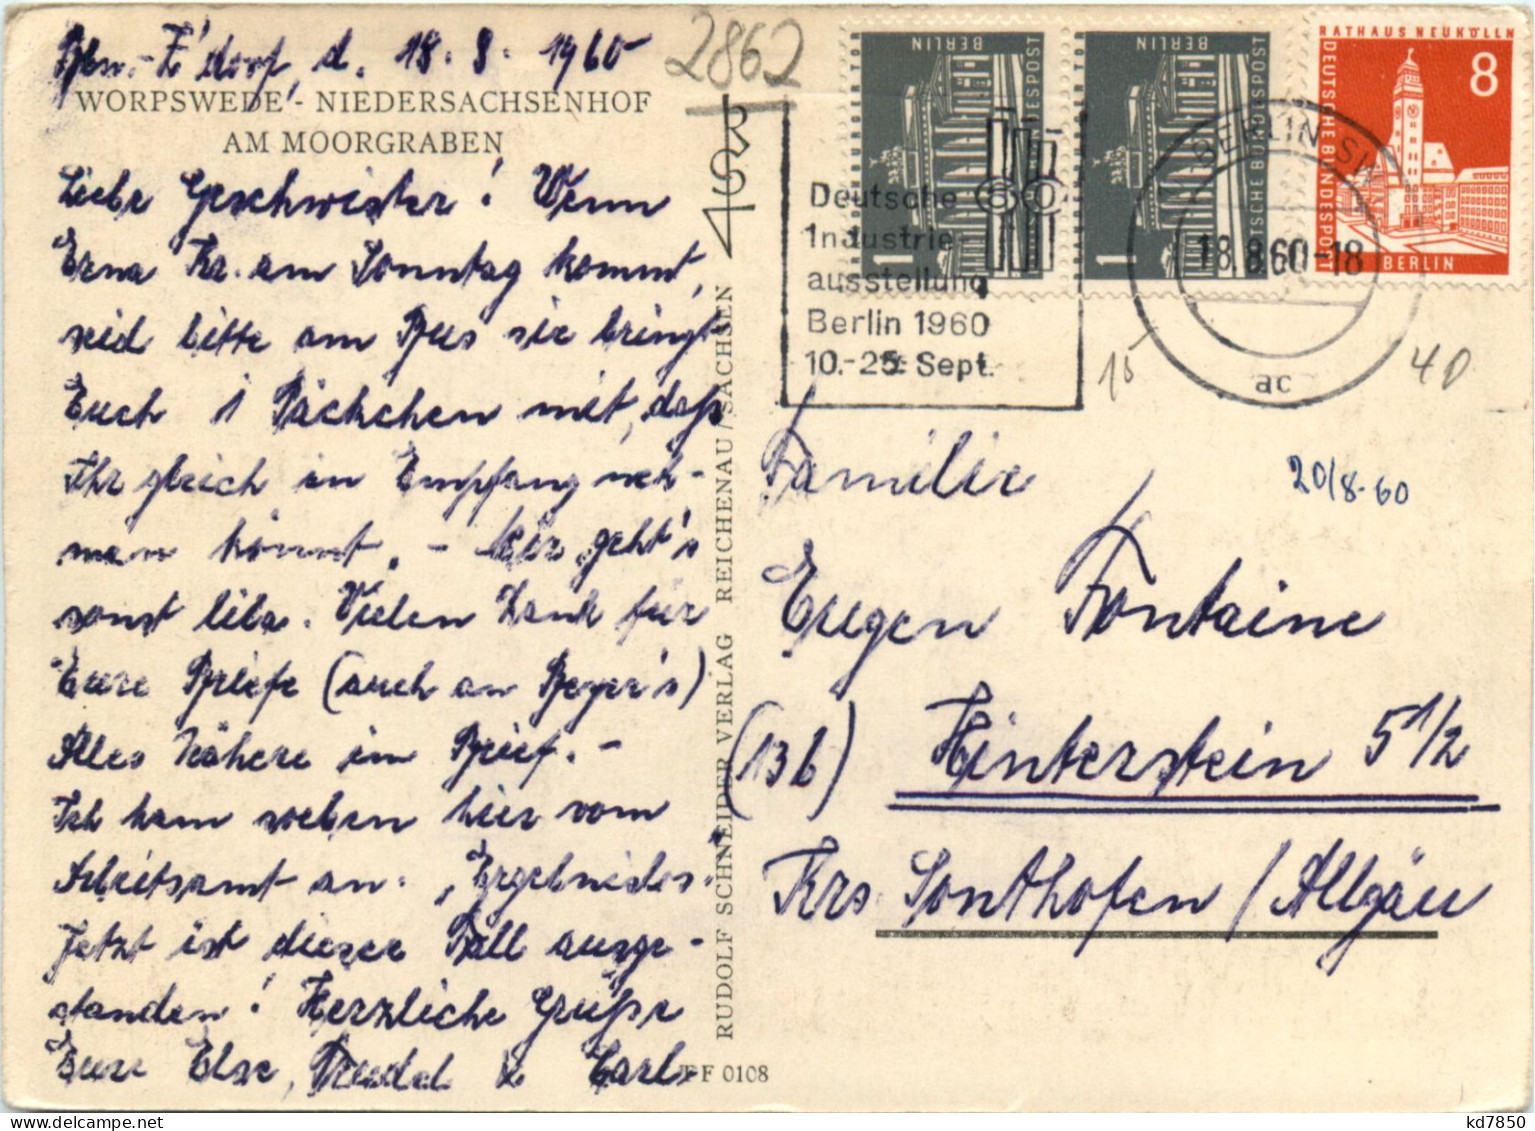 Bln.-Z'dorf, d. 18.8.1960
WORPSWEDE - NIEDERSACHSENHOF
AM MOORGRABEN
Liebe Geschwister! Wenn
Erna Kr. am Sonntag kommt,
seid bitte am Bus sie bringt
Euch 1 Päckchen mit, daß
Ihr gleich in Empfang neh-
men könnt. - Mir geht's
sonst lila. Vielen Dank für
Eure Briefe (auch an Beyer's)
Alles Nähere im Brief. -
Ich kam soeben hier vom
Arbeitsamt an. "Ergebnislos."
Jetzt ist dieser Fall ausge-
standen! Herzliche Grüße
Eure Else, Trudel & Carl
RUDOLF SCHNEIDER VERLAG REICHENAU/SACHSEN
F 0108
2862
BERLIN
DEUTSCHE BUNDESPOST
1
BERLIN
DEUTSCHE BUNDESPOST
1
RATHAUS NEUKÖLLN
DEUTSCHE BUNDESPOST
8
BERLIN
Deutsche
Industrie
ausstellung
Berlin 1960
10.-25. Sept.
BERLIN SW
18.8.60-18
ac
15
40
20/8.60
Familie
Eugen Fontaine
(13b) Hinterstein 5 1/2
Krs. Sonthofen / Allgäu
kd7850